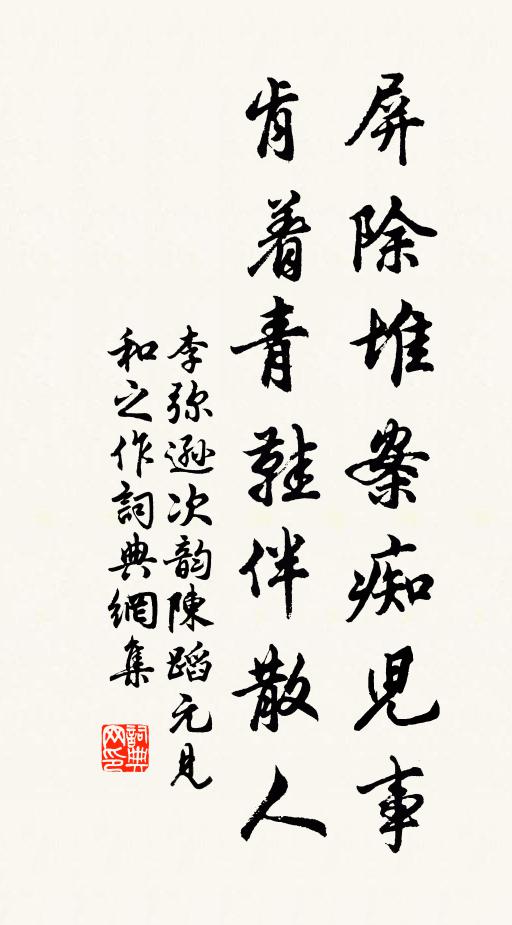 屏除堆案痴児事
肯着青鞋伴散人
李弥遜次韵陳蹈元見
和之作詞典網集
詞典
网印